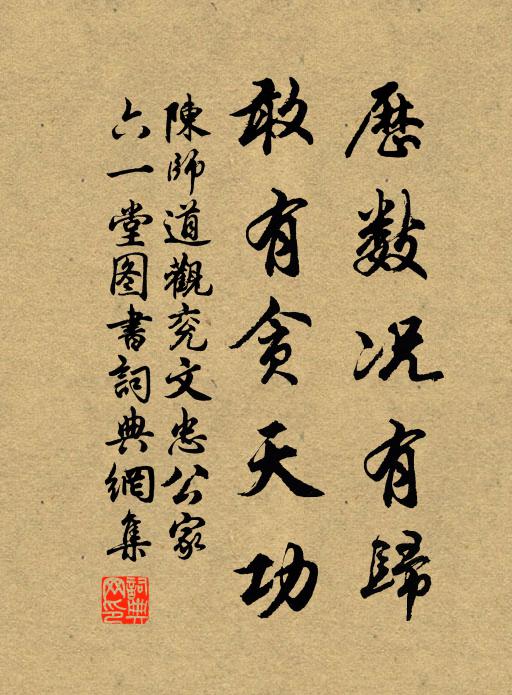 歷數況有歸
敢有貪天功
陳師道觀兗文忠公家
六一堂图書詞典網集
詞典网印